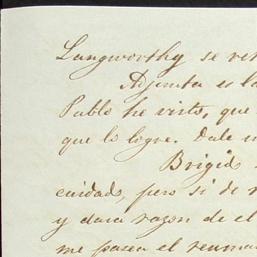 Langworthy se ver
Adjunta es la
Pablo he visto, que
que lo logre. Dale
Brigid
cuidado, pero si de
y dara razon de el
me pasea el reuma